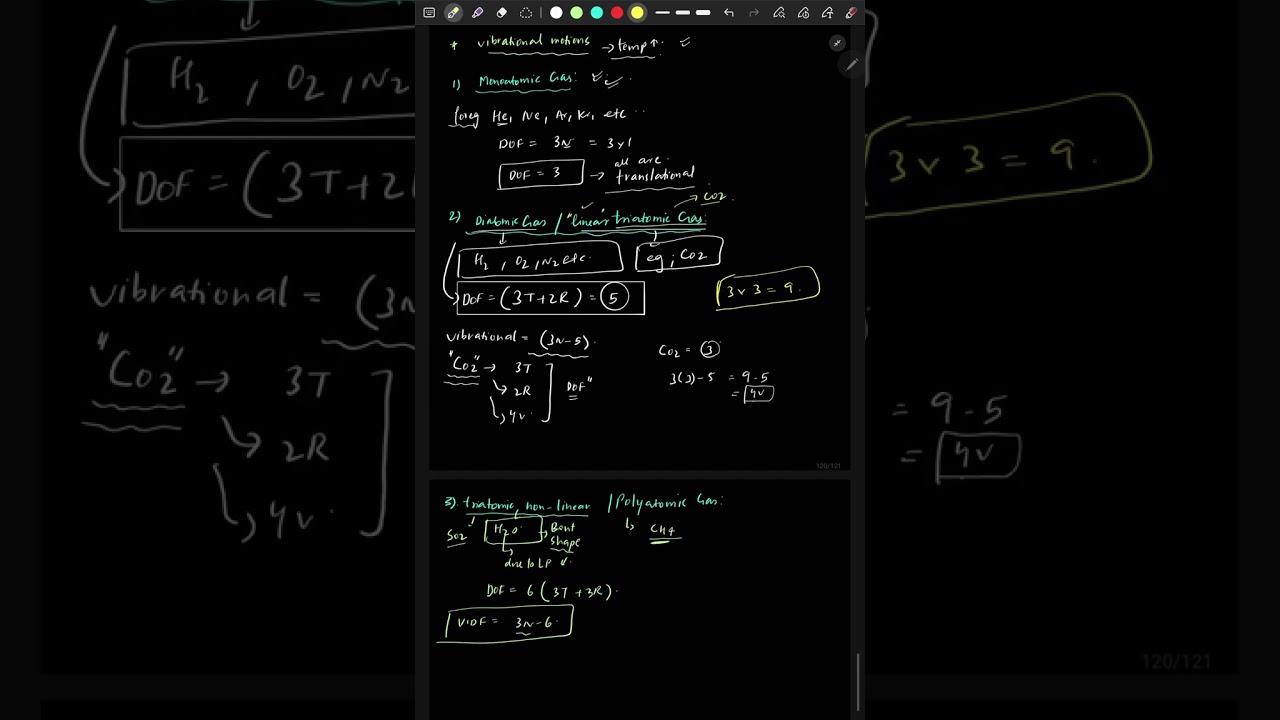 * vibrational motions → temp↑.
1) Monoatomic Gas:
foreg He, Ne, Ar, Kr, etc ..
DOF = 3N = 3×1
DOF = 3 → all are translational
2) Diatomic Gas / "linear" triatomic Gas: → CO2
H2, O2, N2 etc. eg; CO2
DOF = (3T+2R) = 5
3 × 3 = 9.
vibrational = (3N-5).
"CO2" → 3T
→ 2R
→ 4v.
DOF"
CO2 = 3
3(3)-5 = 9-5
= 4v
120/121
3). triatomic, non-linear / Polyatomic Gas:
SO2 H2O. → Bent shape
↳ CH4
due to LP
DOF = 6 (3T + 3R).
VDF = 3N-6.
H2, O2, N2
DOF = (3T+2R
3 × 3 = 9.
vibrational = (3N
"CO2" → 3T
→ 2R
→ 4v.
= 9-5
= 4v
120/121